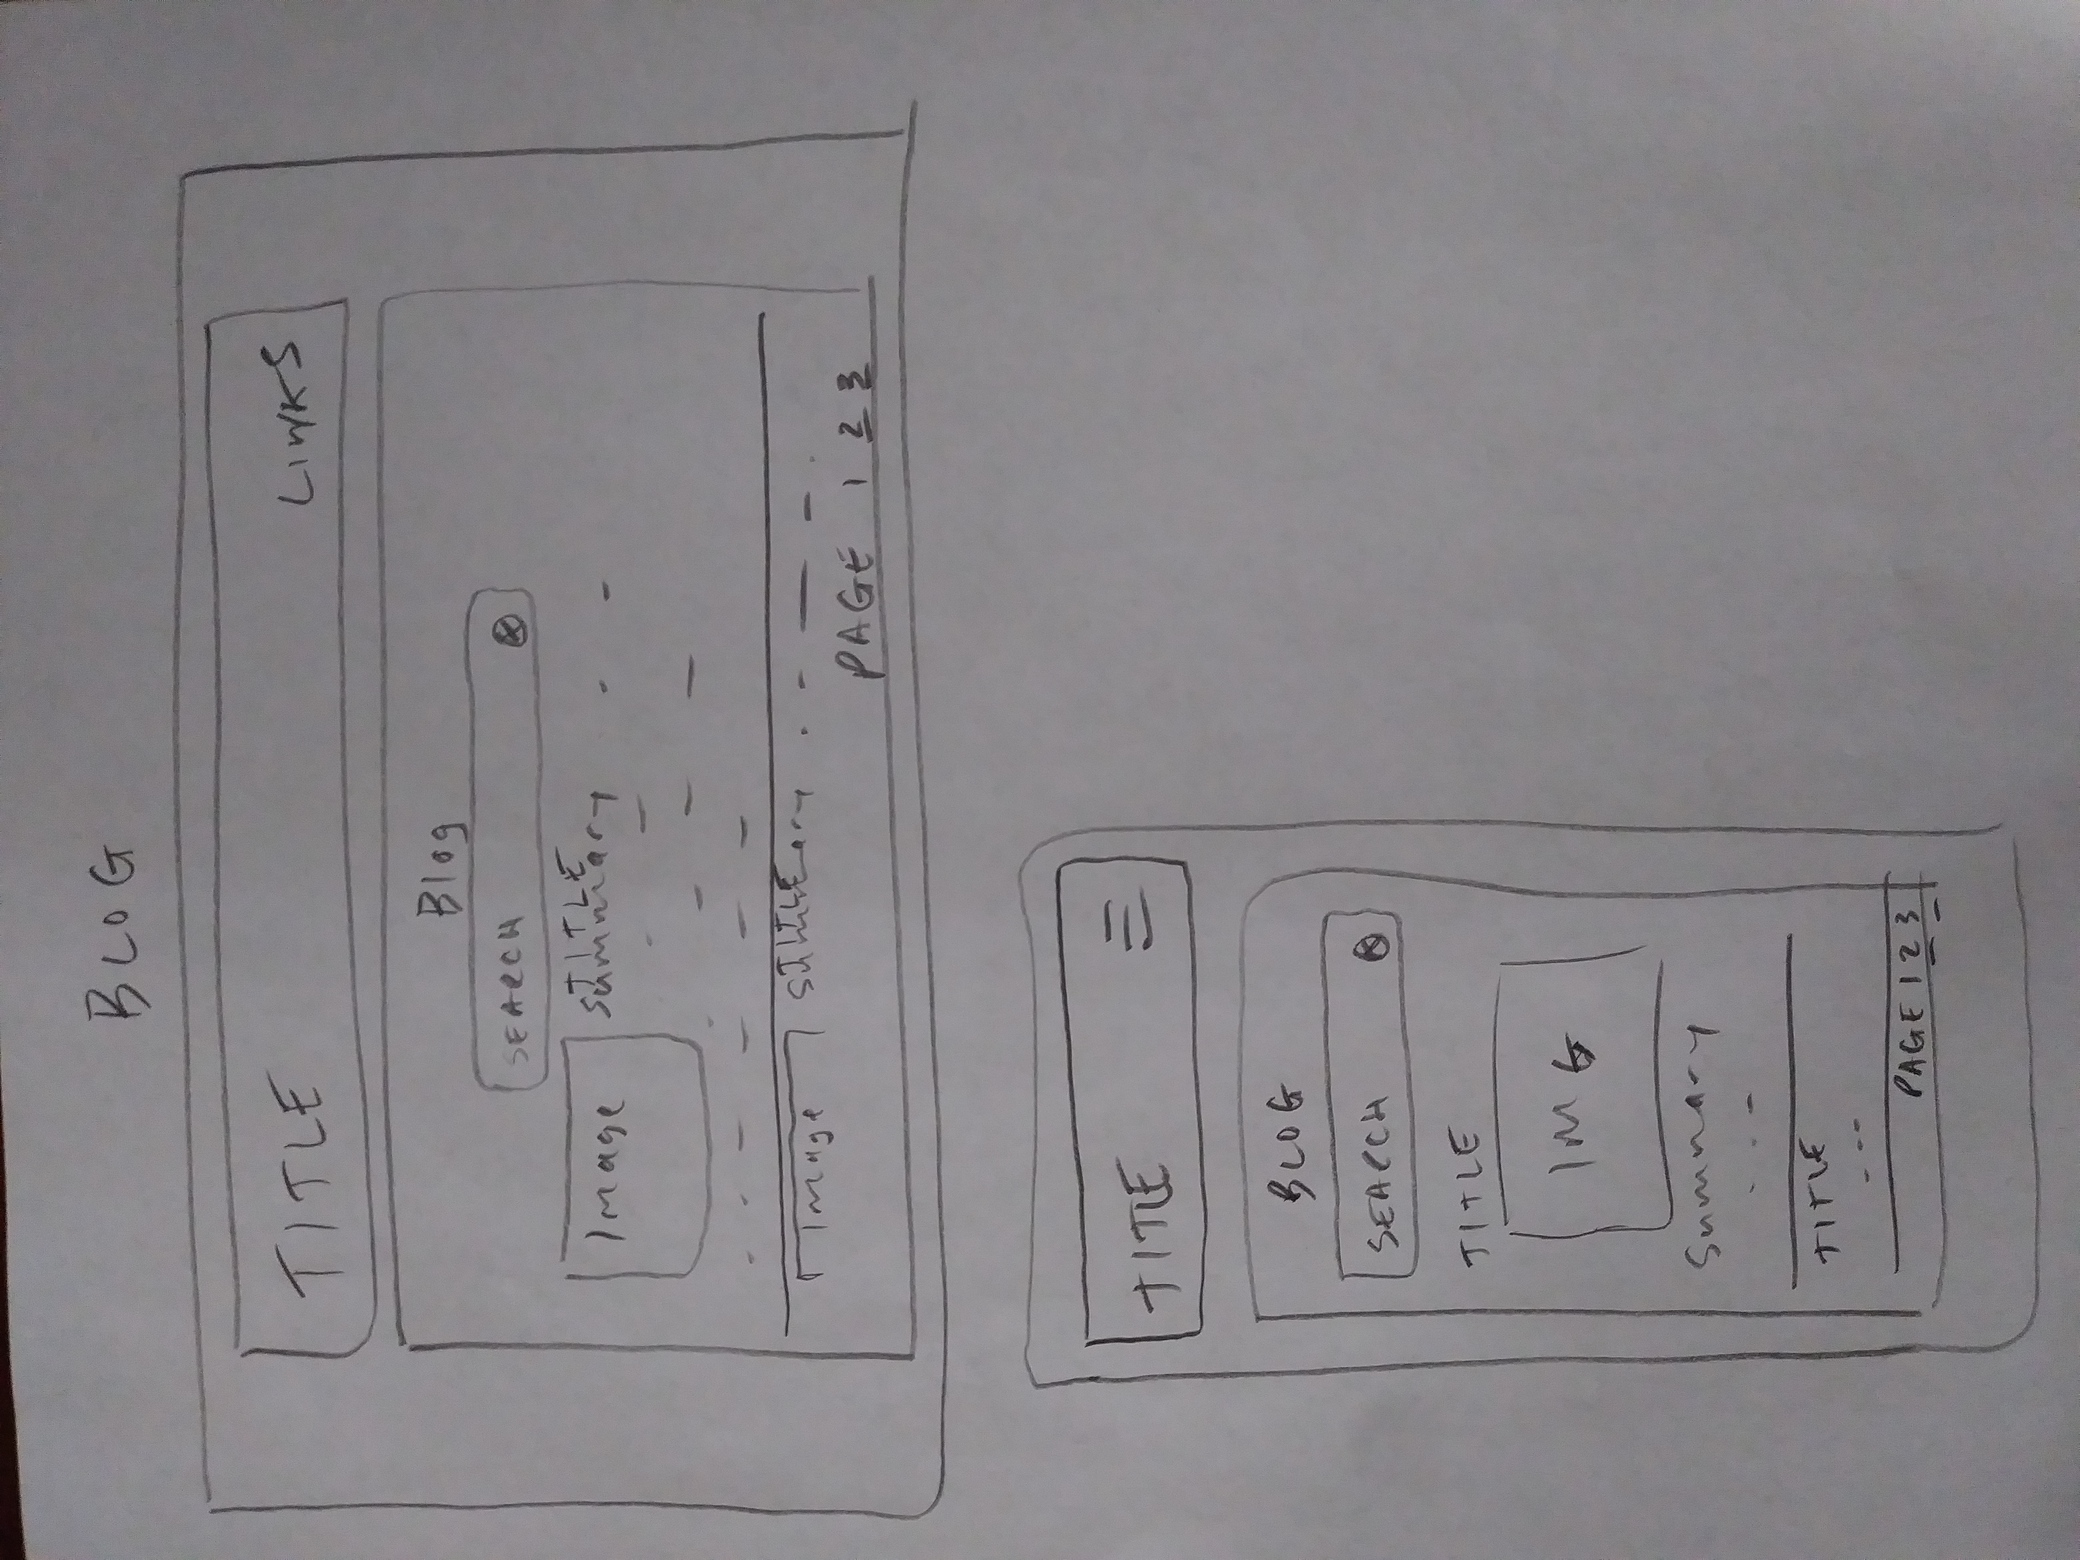 BLOG
TITLE LINKS
Blog
SEARCH
TITLE
Image Summary
TITLE
Image Summary
PAGE 1 2 3
TITLE
BLOG
SEARCH
TITLE
IMG
Summary
TITLE
PAGE 1 2 3